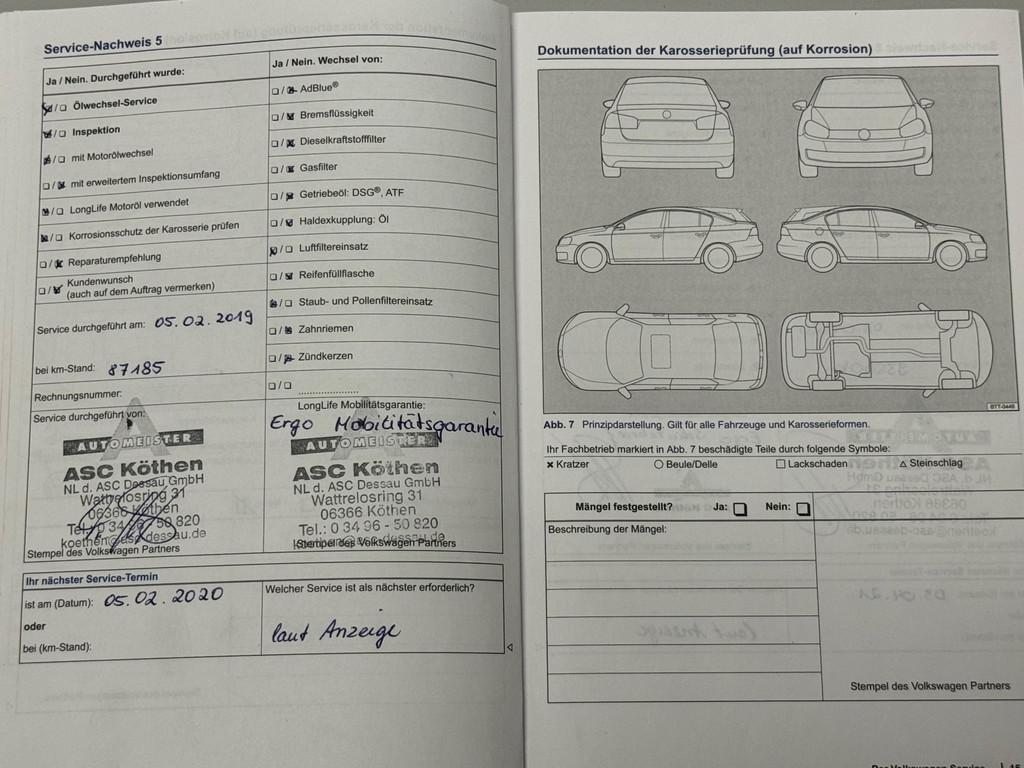 Service-Nachweis 5
Ja / Nein. Durchgeführt wurde:
☒/☐ Ölwechsel-Service
☒/☐ Inspektion
☒/☐ mit Motorölwechsel
☐/☒ mit erweitertem Inspektionsumfang
☒/☐ LongLife Motoröl verwendet
☒/☐ Korrosionsschutz der Karosserie prüfen
☐/☒ Reparaturempfehlung
☐/☒ Kundenwunsch
(auch auf dem Auftrag vermerken)
Service durchgeführt am: 05.02.2019
bei km-Stand: 87185
Rechnungsnummer:
Service durchgeführt von:
AUTOMEISTER
ASC Köthen
NL d. ASC Dessau GmbH
Wattrelosring 31
06366 Köthen
Tel.: 0 34 96 - 50 820
koethen@asc-dessau.de
Stempel des Volkswagen Partners
Ja / Nein. Wechsel von:
☐/☒ AdBlue®
☐/☒ Bremsflüssigkeit
☐/☒ Dieselkraftstofffilter
☐/☒ Gasfilter
☐/☒ Getriebeöl: DSG®, ATF
☐/☒ Haldexkupplung: Öl
☒/☐ Luftfiltereinsatz
☐/☒ Reifenfüllflasche
☒/☐ Staub- und Pollenfiltereinsatz
☐/☒ Zahnriemen
☐/☒ Zündkerzen
☐/☐ ....................
LongLife Mobilitätsgarantie:
Ergo Mobilitätsgarantie
AUTOMEISTER
ASC Köthen
NL d. ASC Dessau GmbH
Wattrelosring 31
06366 Köthen
Tel.: 0 34 96 - 50 820
koethen@asc-dessau.de
Stempel des Volkswagen Partners
Ihr nächster Service-Termin
ist am (Datum): 05.02.2020
oder
bei (km-Stand):
Welcher Service ist als nächster erforderlich?
laut Anzeige
Dokumentation der Karosserieprüfung (auf Korrosion)
BTT-0449
Abb. 7 Prinzipdarstellung. Gilt für alle Fahrzeuge und Karosserieformen.
Ihr Fachbetrieb markiert in Abb. 7 beschädigte Teile durch folgende Symbole:
× Kratzer ○ Beule/Delle ☐ Lackschaden △ Steinschlag
Mängel festgestellt? Ja: ☐ Nein: ☐
Beschreibung der Mängel:
Stempel des Volkswagen Partners